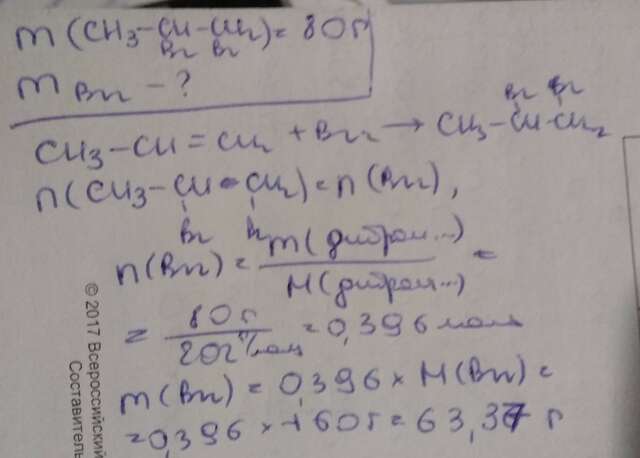 m(CH₃-CH-CH₂)= 80г
Br Br
m Br₂ - ?
Br Br
CH₃-CH=CH₂ + Br₂ → CH₃-CH-CH₂
n(CH₃-CH-CH₂)=n(Br₂),
Br Br
n(Br₂) = m(дибром...) =
M(дибром...)
= 80г = 0,396 моль
202 г/моль
m(Br₂) = 0,396 × M(Br₂) =
=0,396 × 160г = 63,37 г
© 2017 Всероссийский
Составитель